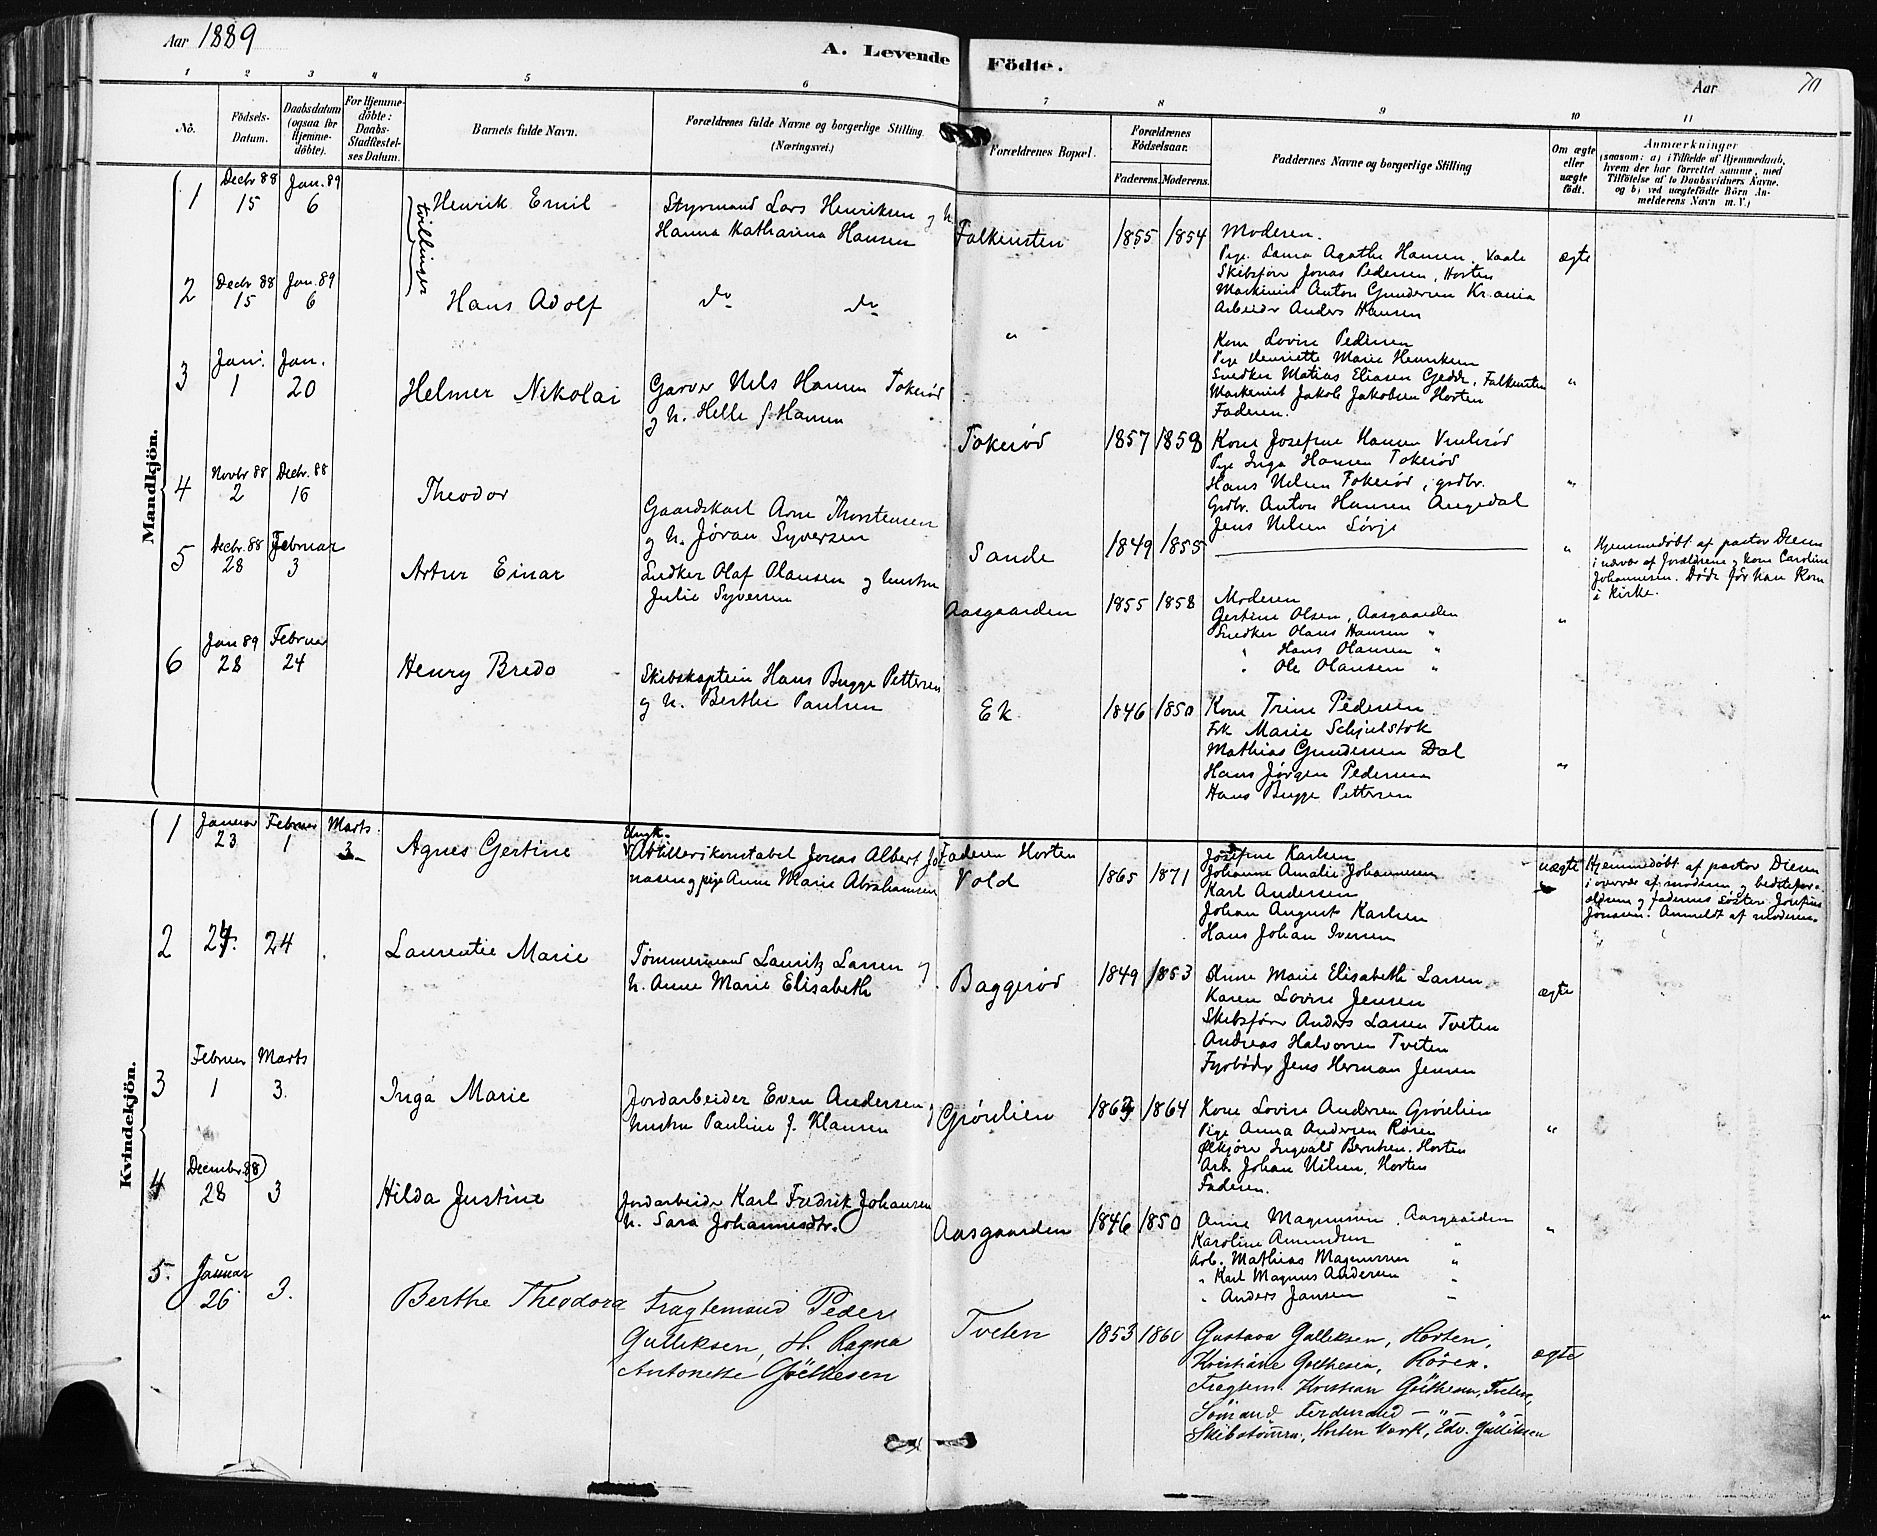 Aar 1889
A. Levende Födte.
Aar
70
1 2 3 4 5 6 7 8 9 10 11
No.
Födsels-Datum.
Daabsdatum (ogsaa for Hjemme-döbte).
For Hjemme-döbte: Daabs-Stadfæstel-ses Datum.
Barnets fulde Navn.
Forældrenes fulde Navne og borgerlige Stilling. (Næringsvei.)
Forældrenes Bopæl.
Forældrenes Födselsaar.
Faderens. Moderens.
Faddernes Navne og borgerlige Stilling
Om ægte eller uægte födt.
Anmærkninger
(saasom: a) i Tilfælde af Hjemmedaab, hvem der har forrettet samme, med Tilföielse af to Daabsvidners Navne. og b) ved uægtefödte Börn An-melderens Navn m. V.)
Mandkjön.
1
Decbr 88 15
Jan. 89 6
Henrik Emil
tvillinger
Styrmand Lars Henriksen og h.
Hanna Katharina Hansen
Falkensten
1855 1854
Moderen.
Pige Laura Agathe Hansen, Vaale
Skibsfør Jonas Pedersen, Horten
Maskinist Anton Gundersen Kr.ania
Arbeider Anders Hansen
ægte
2
Decbr 88 15
Jan. 89 6
Hans Adolf
do do
"
Kone Lovise Pedersen
Pige Henriette Marie Henriksen
Snedker Matias Eliasen Gedde, Falkensten
Maskinist Jakob Jakobsen Horten
Faderen.
"
3
Jan. 1
Jan. 20
Helmer Nikolai
Garver Nils Hansen Tokerød
og h. Helle f. Hansen
Tokerød
1857 1858
Kone Josefine Hansen
Pige Inga Hansen Tokerød
Hans Nilsen Tokerød, grdbr.
Grdbr. Anton Hansen
Jens Nilsen Sørje
"
4
Novbr 88 2
Decbr. 88 16
Theodor
Gaardskarl Arne Thorstensen
og h. Jøran Syversen
Sande
1849 1855
"
Hjemmedøbt af pastor Diesen
i nærvær af forældrene og kone Caroline
Johannesen. Døde før han kom
i kirke.
5
Decbr. 88 28
Februar 3
Artur Einar
Snedker Olaf Olausen og hustru
Julie Syversen
Aasgaarden
1855 1858
Moderen
Gertine Olsen, Aasgaarden
Snedker Olaus Hansen "
" Hans Olausen "
" Ole Olausen "
"
6
Jan 89 28
Februar 24
Henry Bredo
Skibskaptein Hans Bugge Pettersen
og h. Berthe Paulsen
Ek
1846 1850
Kone Trine Pedersen
Frk Marie Schjelstok
Mathias Gundersen Dal
Hans Jørgen Pedersen
Hans Bugge Pettersen
"
Kvindekjön.
1
Januar 23
Februar 1
Marts 3
Agnes Gertine
Ungk.
Artillerikonstabel Jonas Albert Jo-
nasen og pige Anne Marie Abrahamsen
Faderen Horten
Vold
1865 1871
Josefine Karlsen
Johanne Amalie Johannesen
Karl Andersen
Johan August Karlsen
Hans Johan Iversen
uægte
Hjemmedøbt af pastor Diesen
i overvær af moderen og bedstefor-
ældrene og faderens søster Josefine
Jonasen. Anmeldt af moderen.
2
24
Laurentie Marie
Tømmermand Lauritz Larsen og
h. Anne Marie Elisabeth
Baggerød
1849 1853
Anne Marie Elisabeth Larsen
Karen Lovise Jensen
Skibsfører Anders Larsen Tveten
Andreas Halvorsen Tveten
Fyrbøder Jens Herman Jensen
ægte
3
Februar 1
Marts 3.
Inga Marie
Jordarbeider Even Andersen og
hustru Pauline J. Klausen
Grønlien
1864
Kone Lovise Andersen Grønlien
Pige Anna Andersen Røren
Ølkjører Ingvald Berntsen. Horten
Arb. Johan Nilsen, Horten
Faderen.
"
4
Decembr. 88 28
3
Hilda Justine
Jordarbeider Karl Fredrik Johansen
h. Sara Johannesdtr.
Aasgaarden
1846 1850
Anne Magnussen, Aasgaarden
Karoline Amundsen "
Arb. Mathias Magnussen "
" Karl Magnus Andersen "
" Anders Jansen "
"
5.
Januar 26
3.
Berthe Theodora
Fragtemand Peder
Gulliksen, H. Ragna
Antonette Göthesen
Tveten
1853 1860
Gustava Gulliksen, Horten,
Kristiane Göthesen, Rören.
Fragtem. Kristian Göthesen, Tveten,
Sömand Ferdinand — " — " —
Skibstömm., Horten Værk, Edv. Gulliksen
ægte